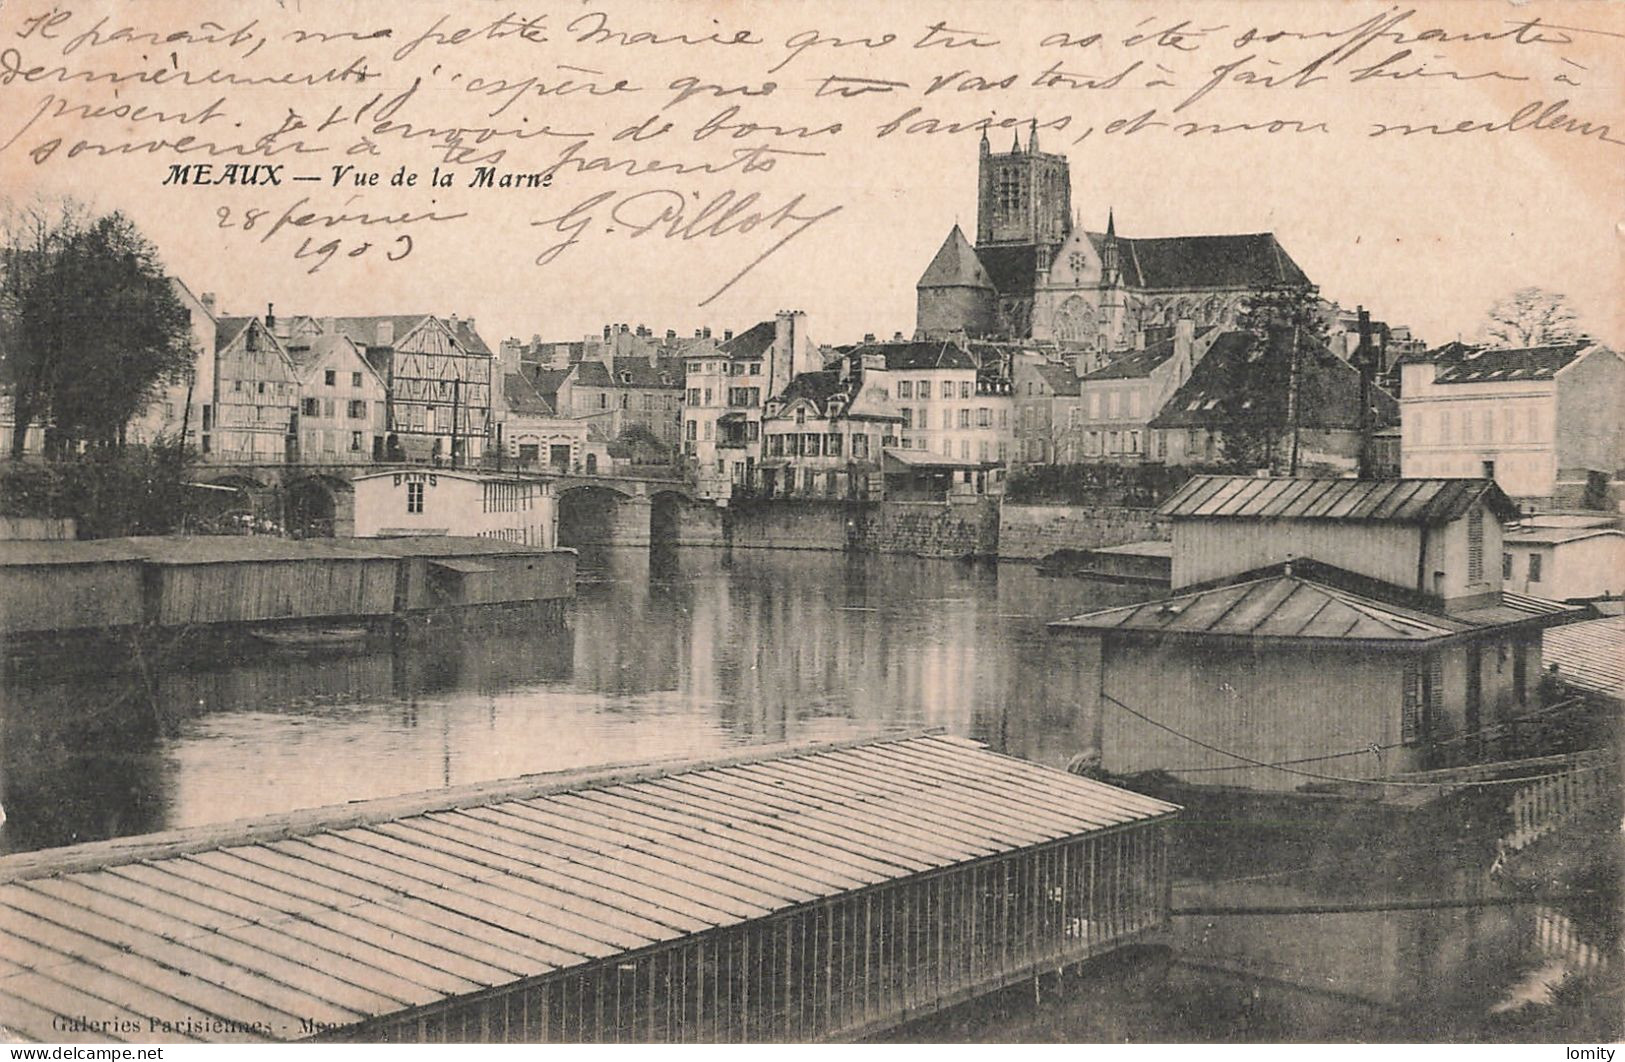 Il paraît, ma petite Marie que tu as été souffrante
dernièrement, j'espère que tu vas tout à fait bien à
présent. Je t'envoie de bons baisers, et mon meilleur
souvenir à tes parents
MEAUX — Vue de la Marne
28 février
1903
G. Pillot
BAINS
Galeries Parisiennes - Meaux
delcampe.net
lomity